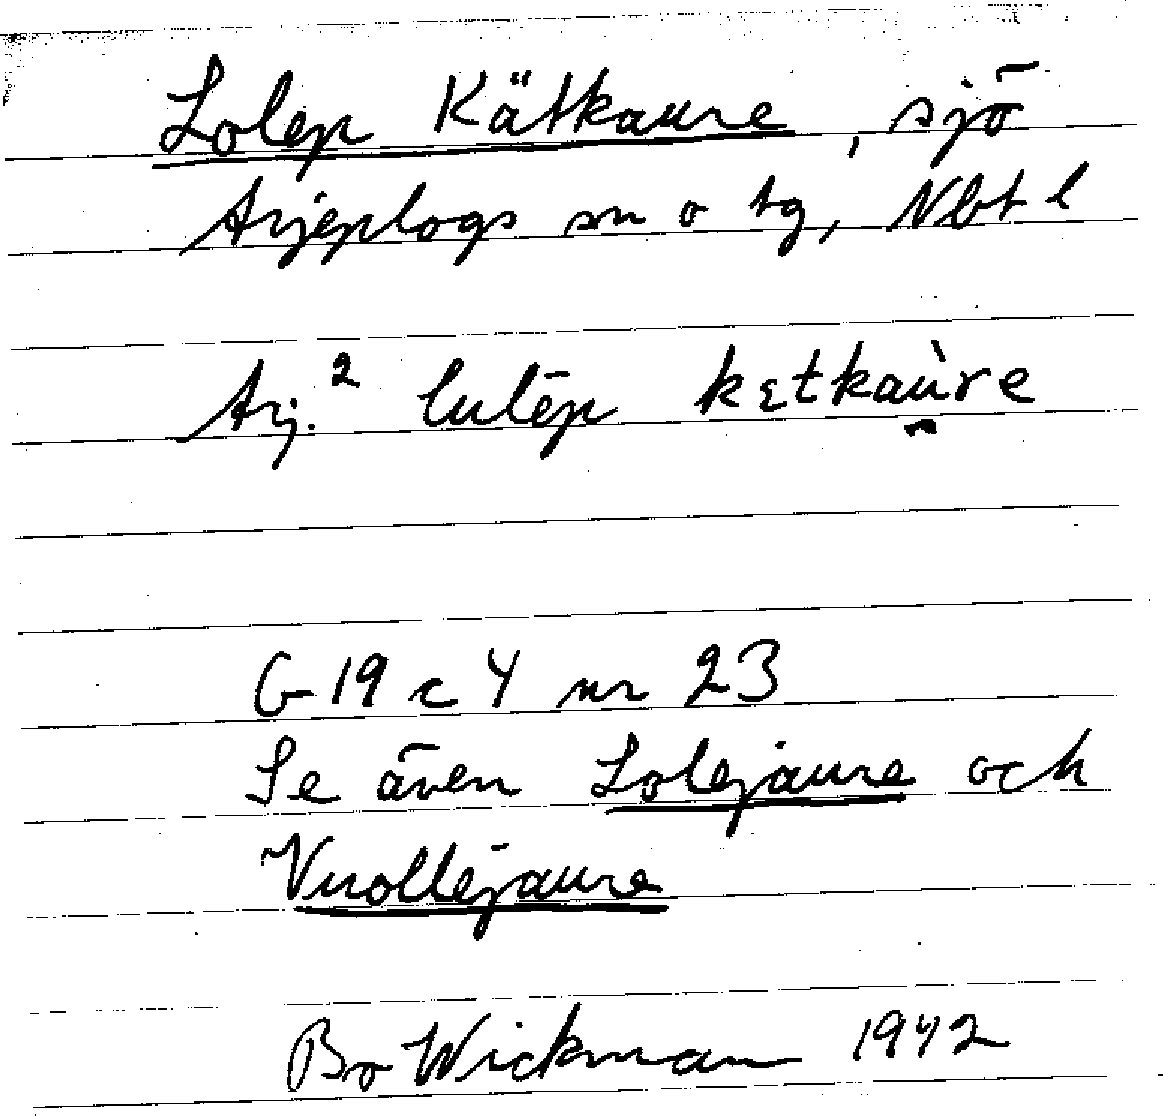 Lolep Kätkaure, sjö
Arjeplogs sn o tg, Nbt l
Arj.² lulēp kɛtkaù̯re
G 19 c 4 nr 23
Se även Lolejaure och
Vuollējaure
Bo Wickman 1942